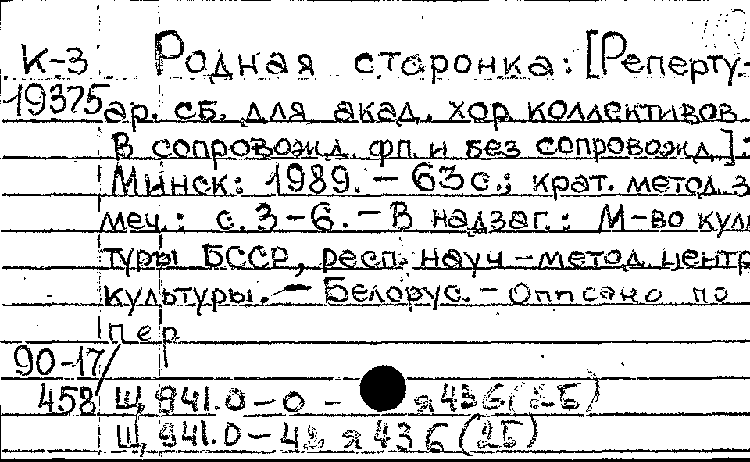 К-3 Родная сторонка: [Реперту-
19375 ар. сб. для акад. хор. коллективов
в сопровожд. фп. и без сопровожд.]:
Минск: 1989. – 63с.; крат. метод. за
меч.: с. 3-6. – В надзаг.: М-во куль
туры БССР, респ. науч-метод. центр
культуры. – Белорус. – Описано по
пер
90-17/
458 Щ 941.0-0 - я436(2Б)
Щ 941.0-42 я436(2Б)